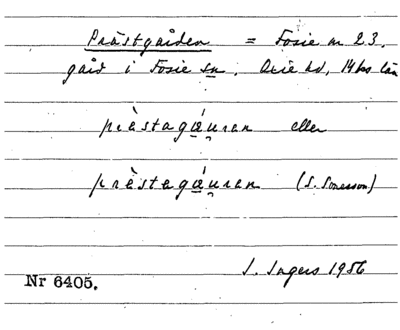 Prästgården = Fosie nr 23.
gård i Fosie sn. Oxie hd, Mhs län
prèstagǻu̯ren eller
prèstegǻu̯ren (S. Svensson)
I. Ingers 1956
Nr 6405.